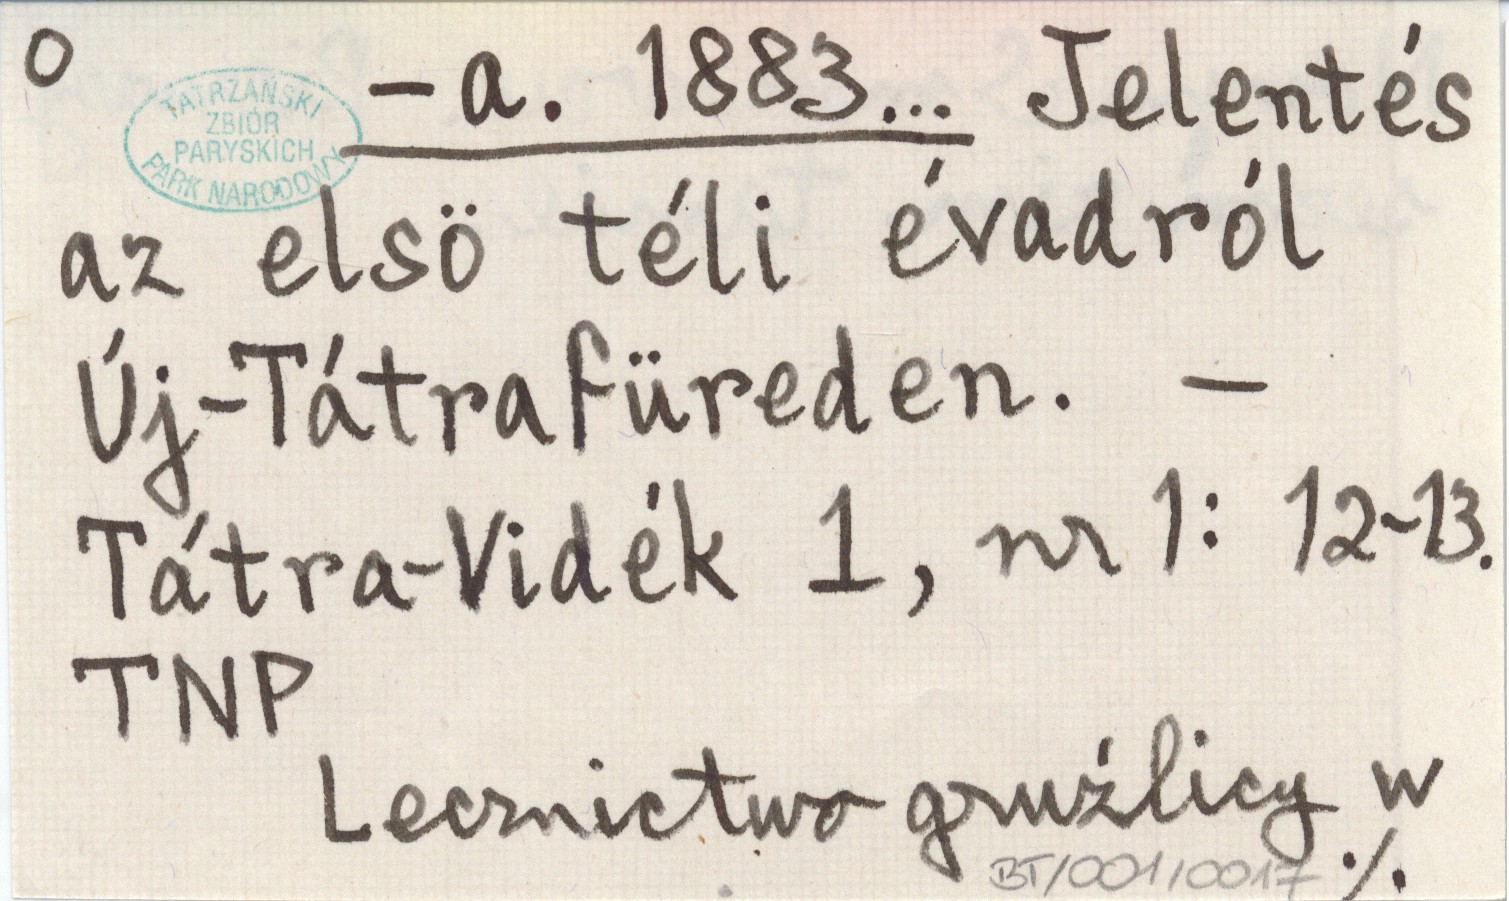 O
TATRZAŃSKI
ZBIÓR
PARYSKICH
PARK NARODOWY
– a. 1883... Jelentés
az elsö téli évadról
Új-Tátrafüreden. –
Tátra-Vidék 1, nr 1: 12-13.
TNP
Lecznictwo gruźlicy w
BT/001/0017 ./.